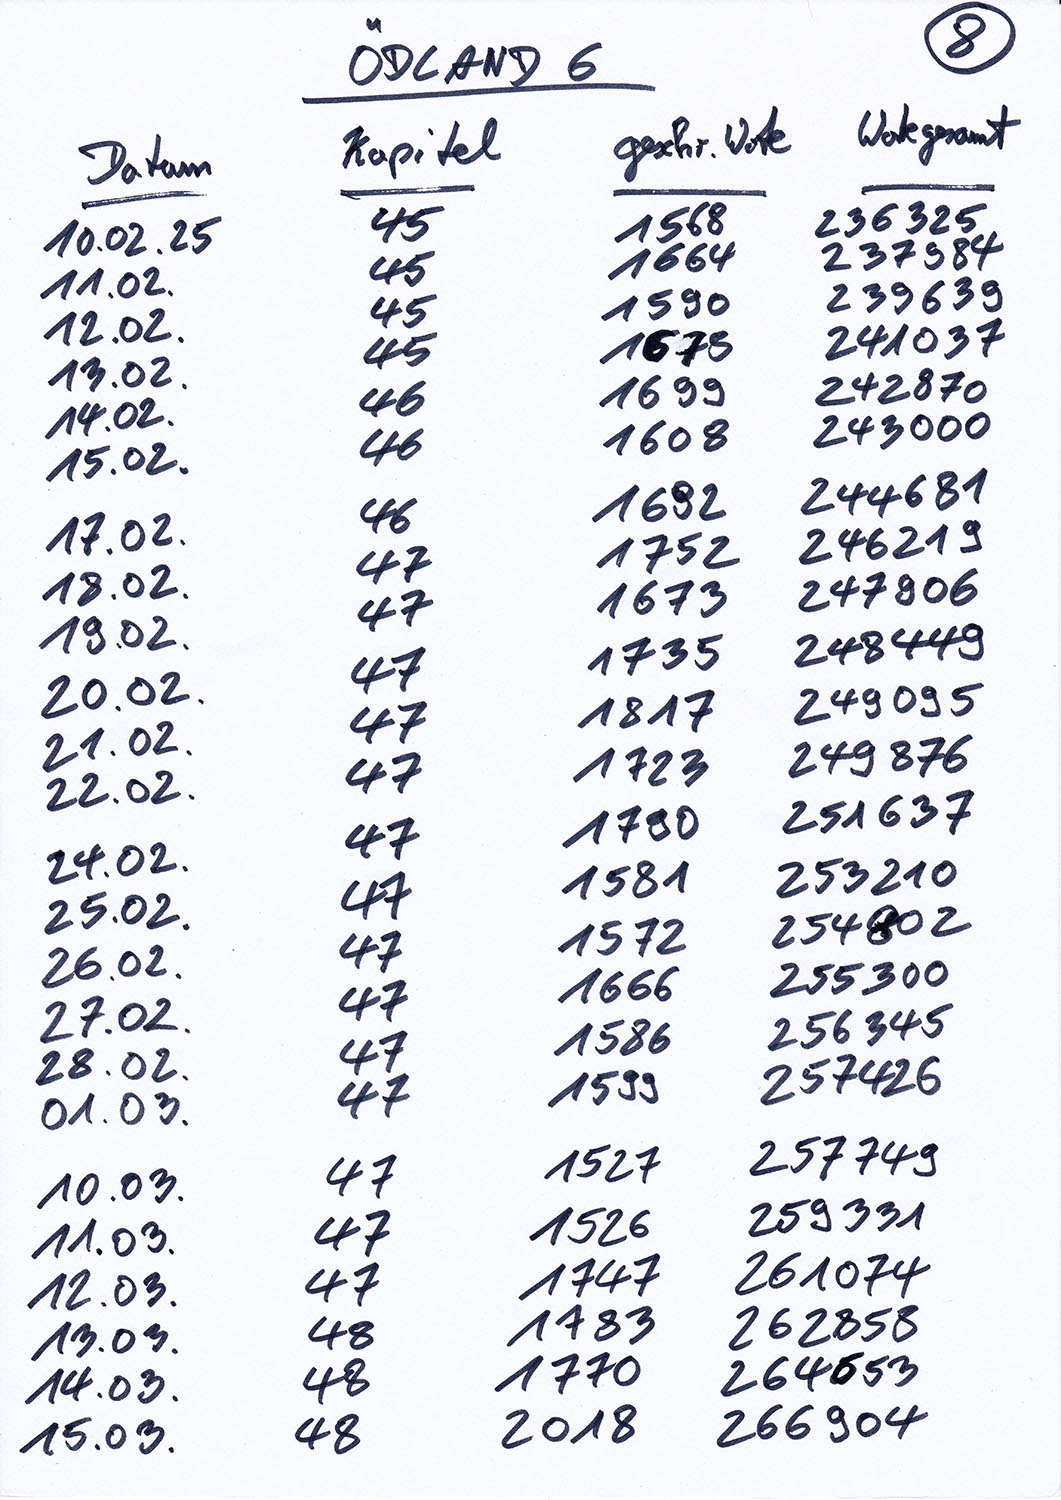 8
ÖDLAND 6
Datum Kapitel geschr. Worte Worte gesamt
10.02.25 45 1568 236325
11.02. 45 1664 237984
12.02. 45 1590 239639
13.02. 45 1678 241037
14.02. 46 1699 242870
15.02. 46 1608 243000
17.02. 46 1692 244681
18.02. 47 1752 246219
19.02. 47 1673 247906
20.02. 47 1735 248449
21.02. 47 1817 249095
22.02. 47 1723 249876
24.02. 47 1790 251637
25.02. 47 1581 253210
26.02. 47 1572 254802
27.02. 47 1666 255300
28.02. 47 1586 256345
01.03. 47 1599 257426
10.03. 47 1527 257749
11.03. 47 1526 259331
12.03. 47 1747 261074
13.03. 48 1783 262858
14.03. 48 1770 264653
15.03. 48 2018 266904